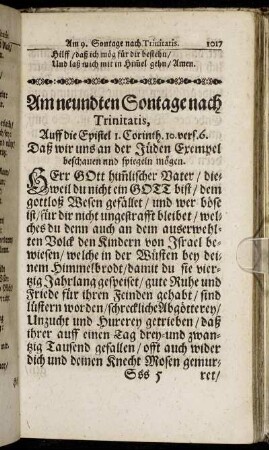 Am 9. Sontage nach Trinitatis. 1017
Hilff/ daß ich mög für dir bestehn/
Und laß mich mit in Him̃el gehn/ Amen.
Am neundten Sontage nach
Trinitatis,
Auff die Epistel 1. Corinth. 10. vers. 6.
Daß wir uns an der Jüden Exempel
beschauen und spiegeln mögen.
HErr GOtt him̃lischer Vater/ die-
weil du nicht ein GOTT bist/ dem
gottloß Wesen gefället/ und wer böse
ist/ für dir nicht ungestrafft bleibet/ wel-
ches du denn auch an dem auserwehl-
ten Volck den Kindern von Israel be-
wiesen/ welche in der Wüsten bey dei-
nem Himmelbrodt/ damit du sie vier-
tzig Jahrlang gespeiset/ gute Ruhe und
Friede für ihren Feinden gehabt/ sind
lüstern worden/ schreckliche Abgötterey/
Unzucht und Hurerey getrieben/ daß
ihrer auff einen Tag drey- und zwan-
tzig Tausend gefallen/ offt auch wider
dich und deinen Knecht Mosen gemur-
Sss 5 ret/